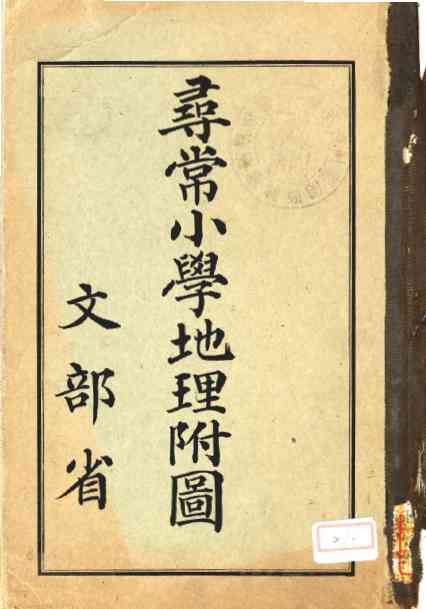 尋常小學地理附圖
文部省